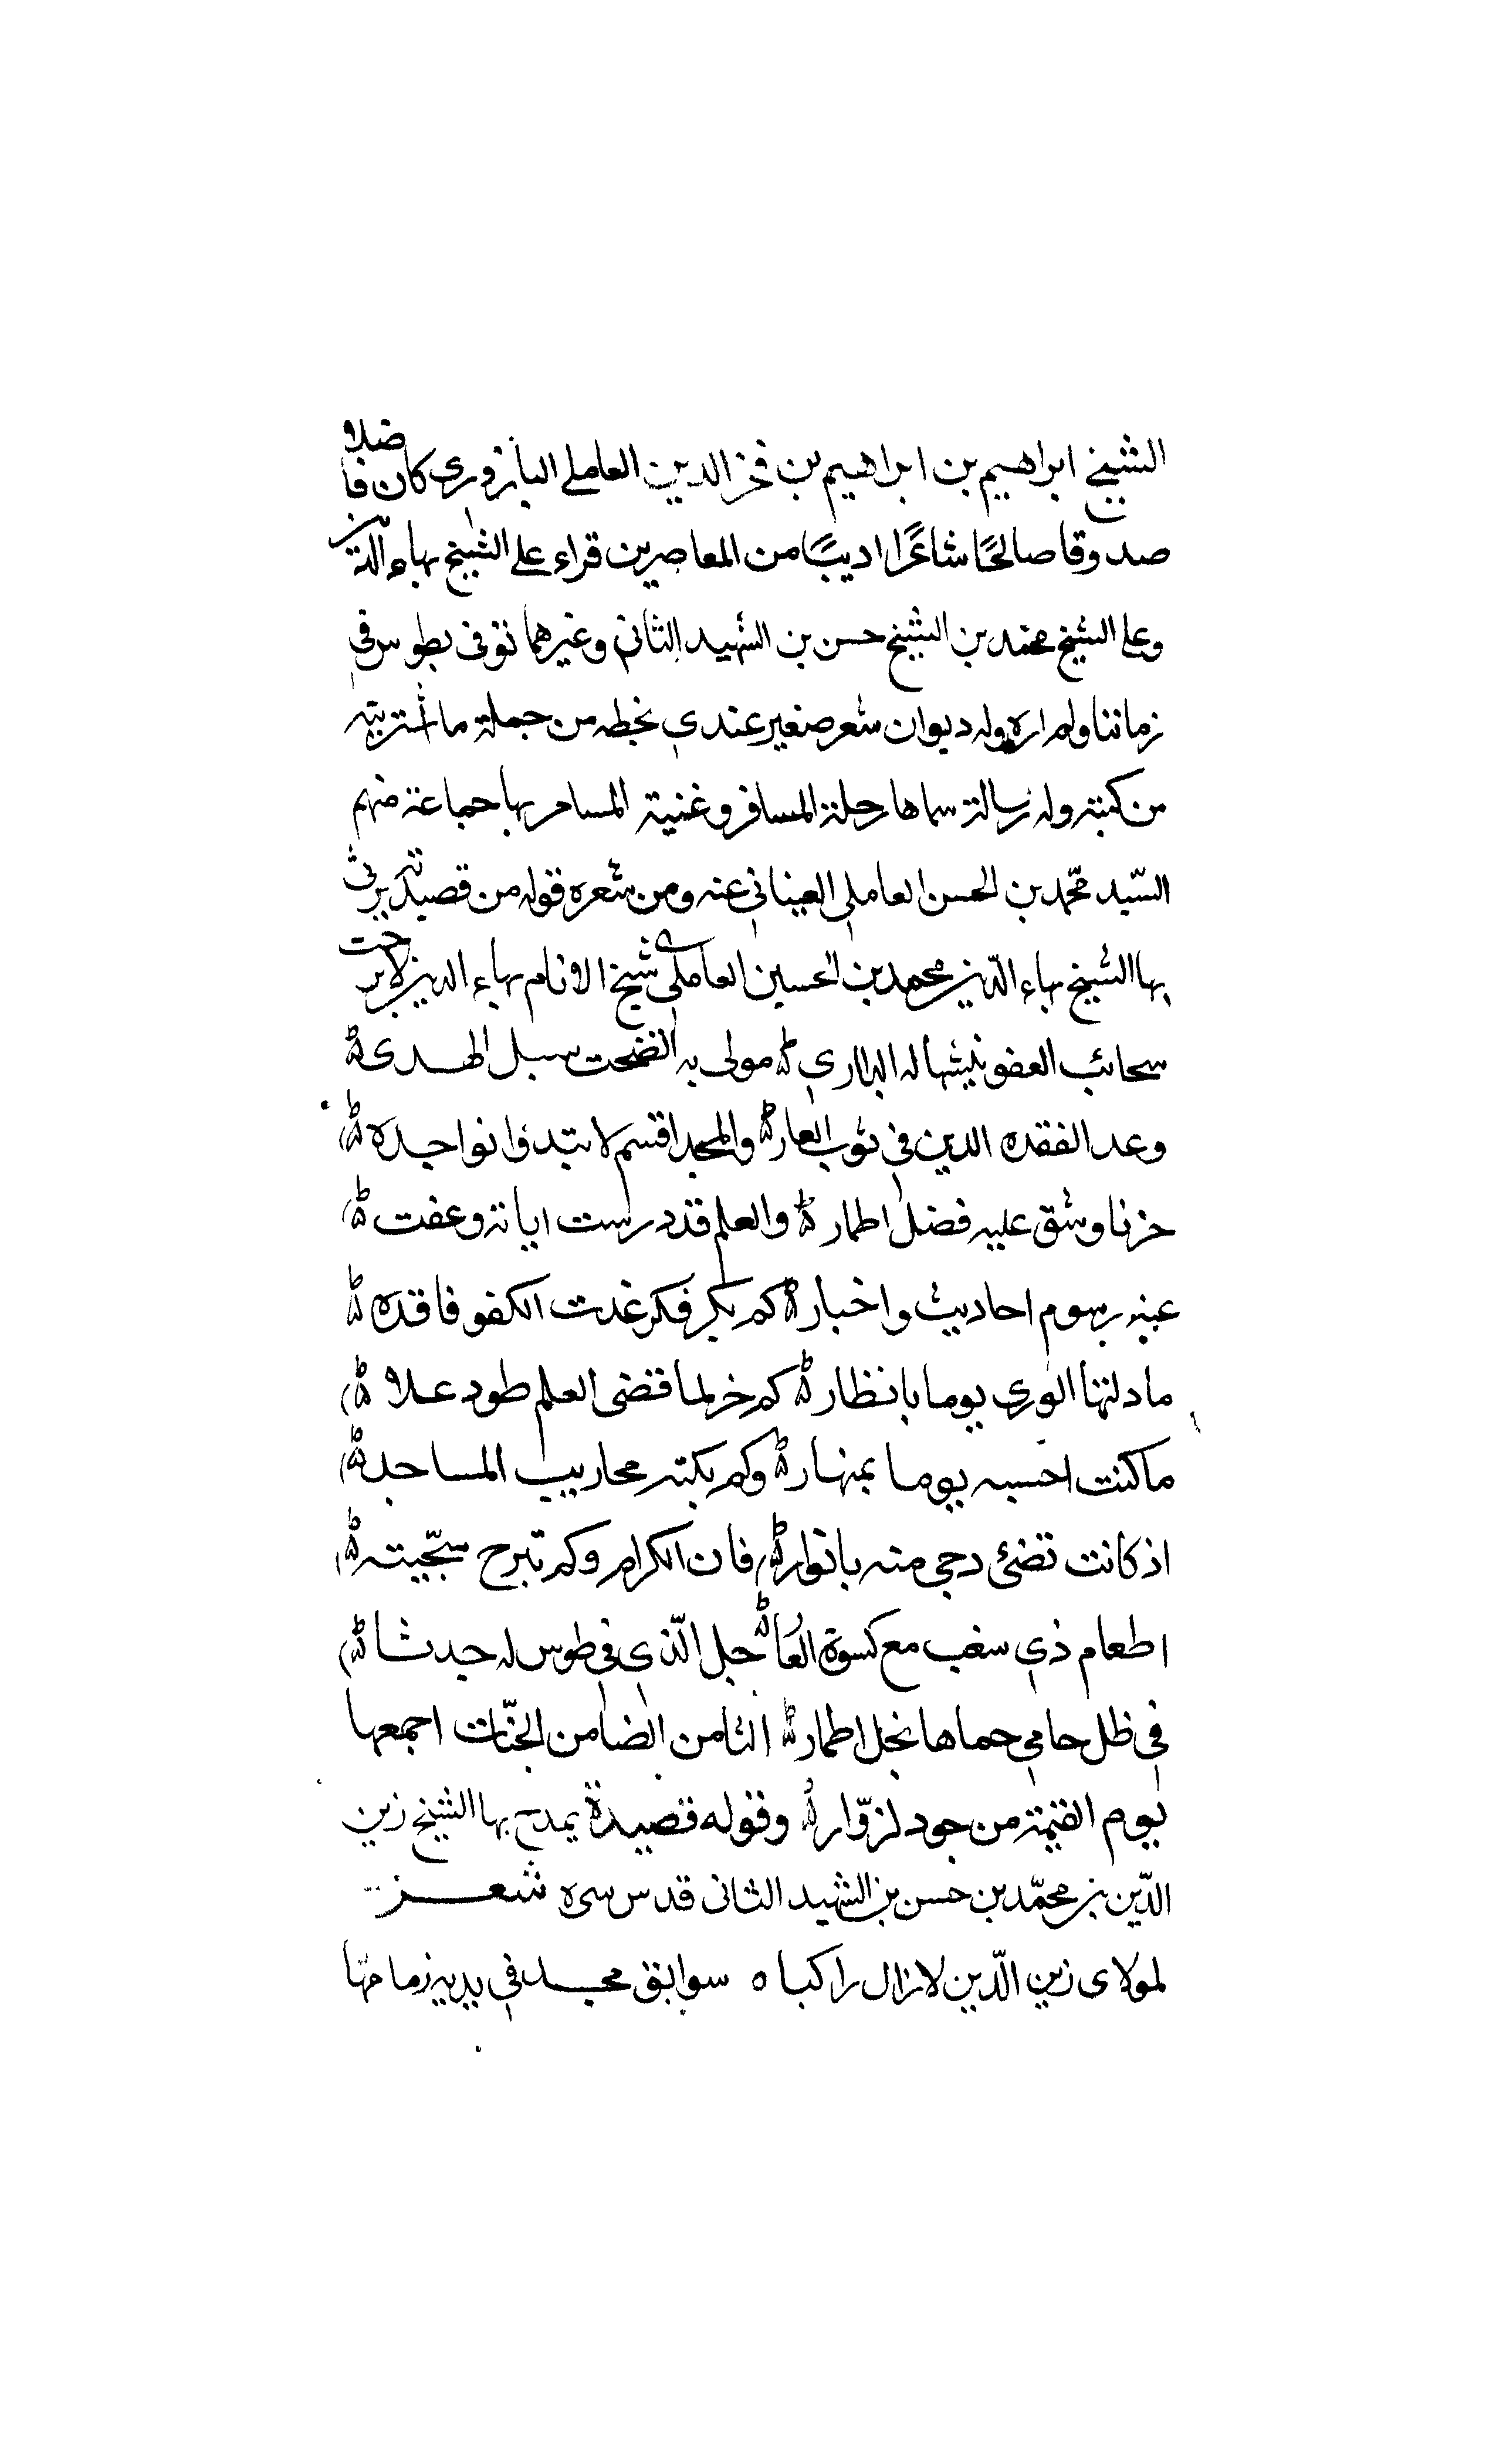 الشيخ ابراهيم بن ابراهيم بن فخر الدين العاملي البازوري كان فاضلا
صدوقا صالحًا شاعرًا اديبًا من المعاصرين قراء علي الشيخ بهاء الدين
وعلي الشيخ محمد بن الشيخ حسن بن الشهيد الثاني وغيرهما توفي بطوس في
زماننا ولم اره وله ديوان شعر صغير عندي بخطه من جملة ما اشتريته
من كتبه وله رسالة سماها رحلة المسافر وغنية المسامر بها جماعة منهم
السّيد محمّد بن الحسن العاملي العيناني عنه ومن شعره قوله من قصيدة يرثي
بها الشيخ بهاء الدّين محمد بن الحسين العاملي شيخ الانام بهاء الدين لا برحت
سحائب العفو ينشها له الباري مولى به اتضحت سبل الهدى
وغدا لفقده الدين في ثوب القار والمجد اقسم لا تبدوا نواجده
حزنا وشق عليه فضل اطمار والعلم قد درست اياته وعفت
عنه رسوم احاديث واخبار كم بكر فكر غدت الكفو فاقدة
ما دلنتها الوري يوما بانظار كم خر لما قضى العلم طود علا
ما كنت احسبه يوما بمنهار وكم بكته محاريب المساجد
اذ كانت تضئ دجى منه بانوار فان الكرام وكم تبرح سجّيته
اطعام ذي سغب مع كسوة العُا جل الّذي في طوس له جدثا
في ظل حامي حماها نجل اطمار الثامن الضامن الجنّات اجمعها
يوم القيمة من جود لزوّار وقوله قصيدة يمدح بها الشيخ زين
الدّين بن محمّد بن حسن بن الشهيد الثاني قدس سره شعر
لمولاي زين الدّين لا زال راكبا ه سوابق مجد في يديه زمامها